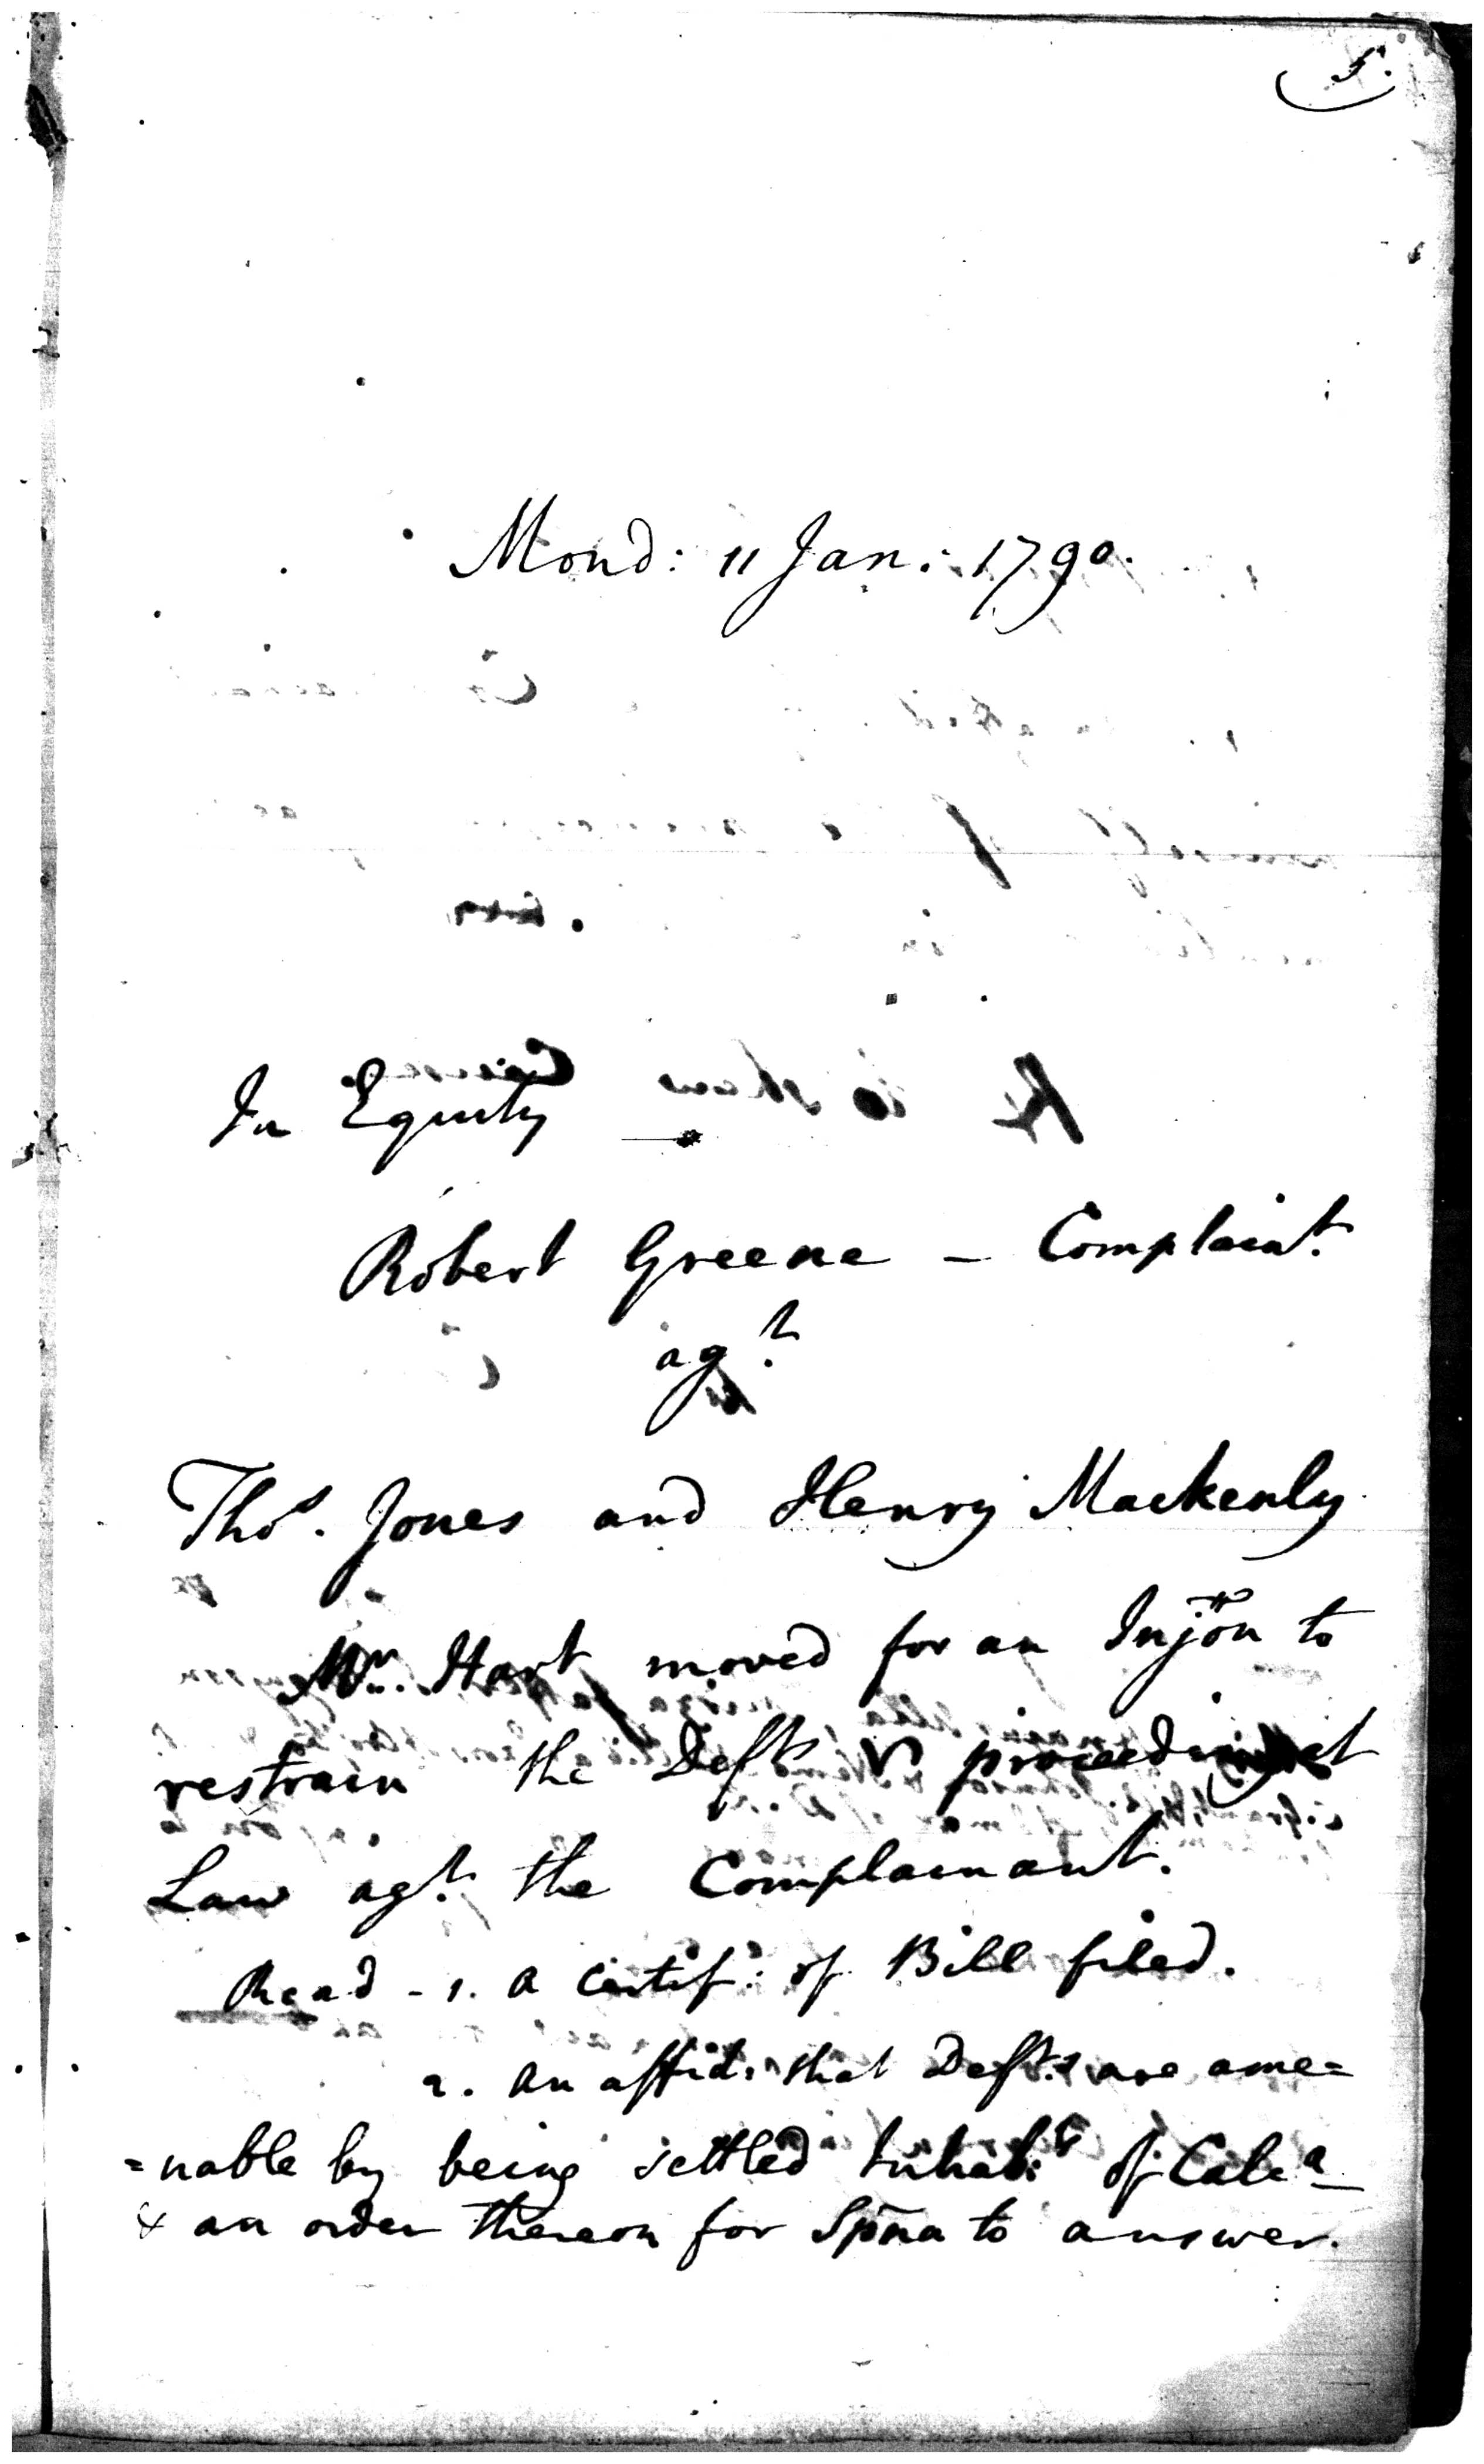 5.
Mond: 11 Jan: 1790.
In Equity
Robert Greene - Complain.t
ag.t
Tho.s Jones and Henry Mackenly
M.r Hart moved for an Injõn to
restrain the Def.ts proceeding at
Law ag.t the Complainant.
Read - 1. a certif: of Bill filed.
2. an affid: that Def.ts are ame=
=nable by being settled Inhab:ts of Calc.a
& an order thereon for Spña to answer.